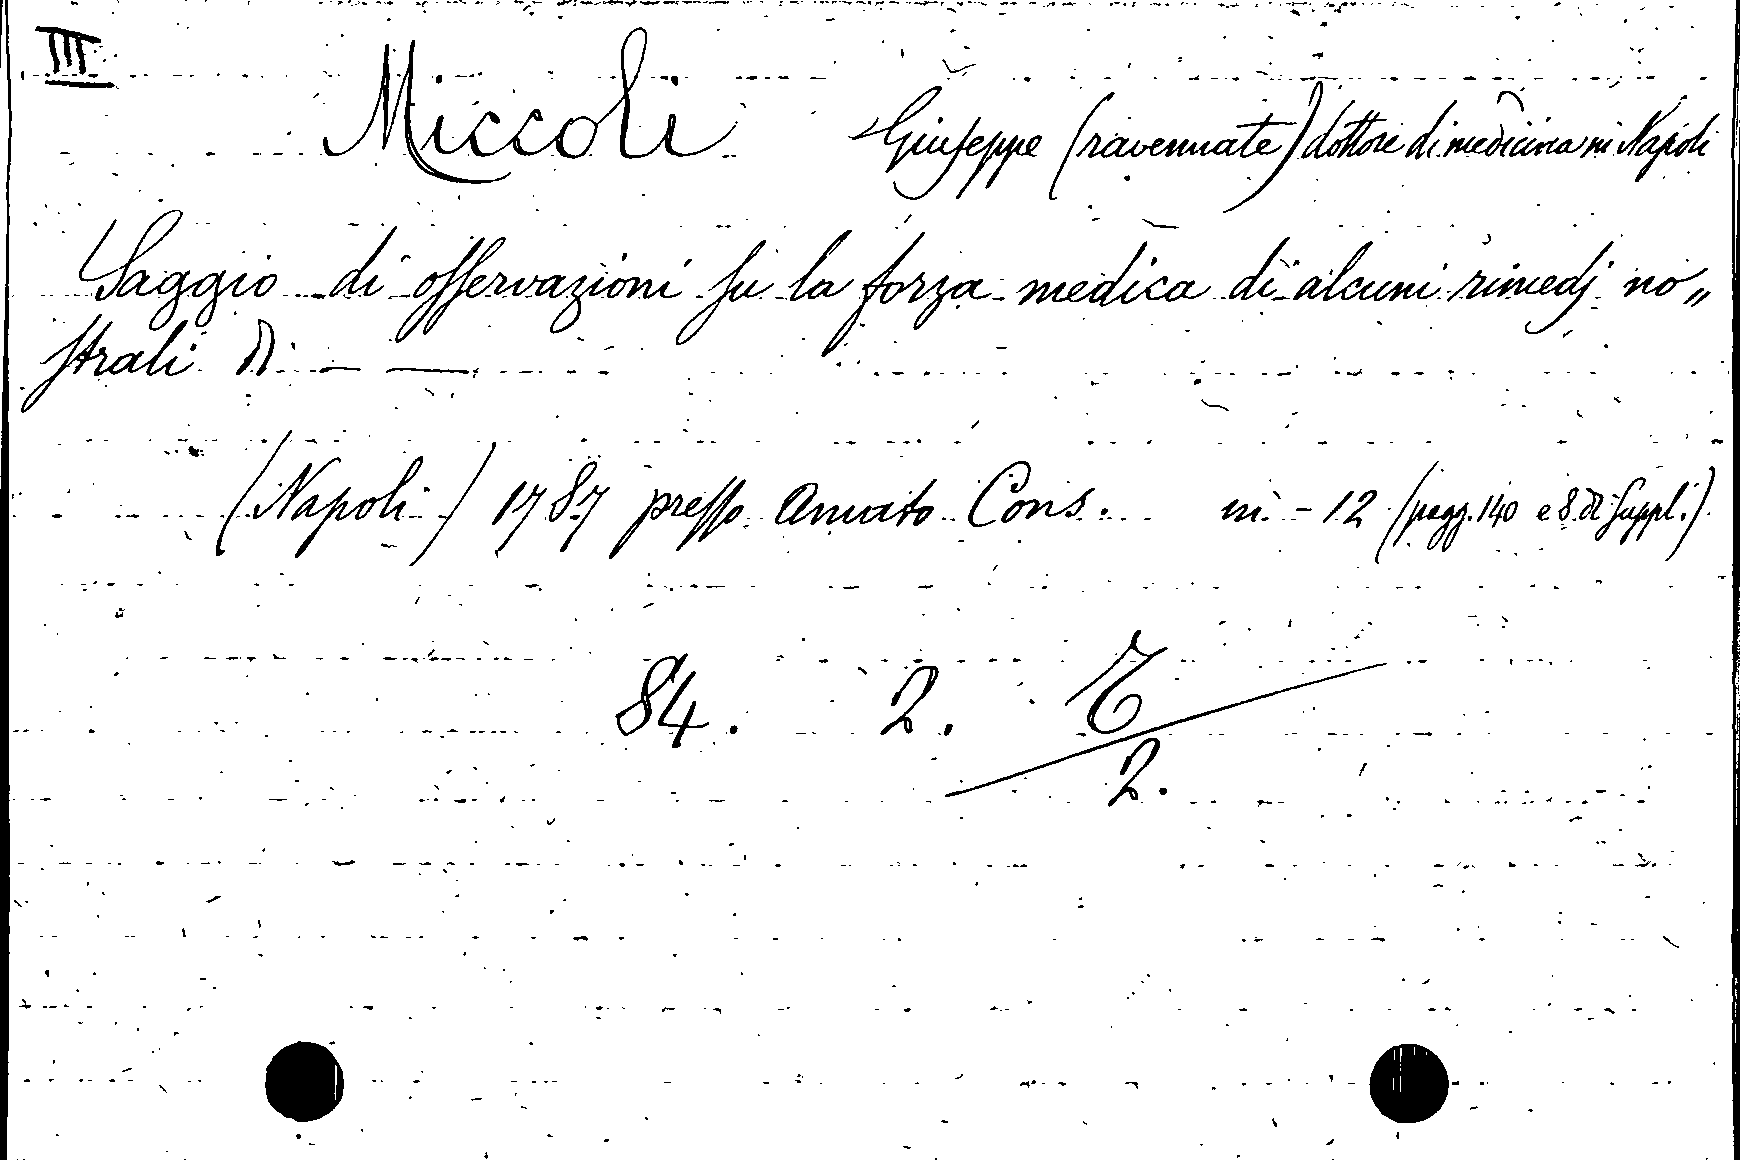 III
Miccoli Giuseppe (ravennate) dottore di medicina in Napoli
Saggio di osservazioni su la forza medica di alcuni rimedj no„
strali di — —
(Napoli) 1787 presso Amato Cons. in - 12 (pagg. 140 e 8 di suppl.)
84. 2. C
2.